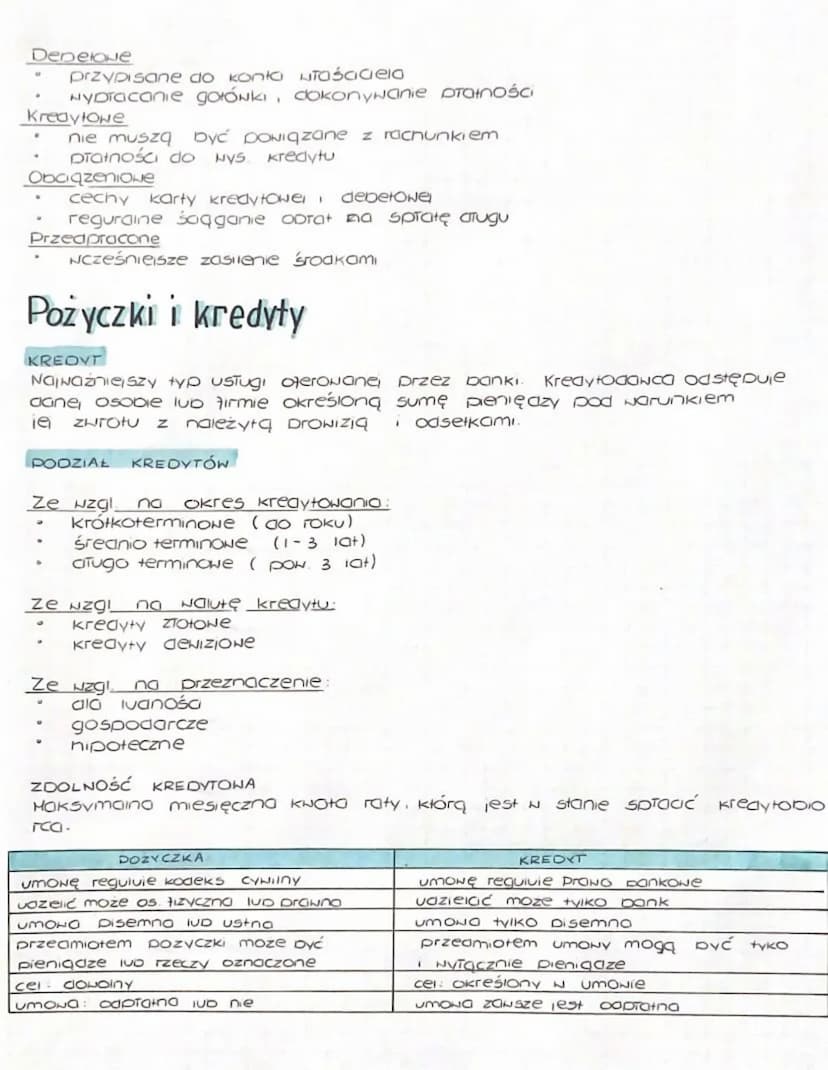 Debetowe
• przypisane do konta właściciela
• wypłacanie gotówki, dokonywanie płatności
Kredytowe
• nie muszą być powiązane z rachunkiem
• płatności do wys. kredytu
Obciążeniowe
• cechy karty kredytowej i debetowej
• reguralne ściąganie obrat na spłatę długu
Przedpłacone
• wcześniejsze zasilenie środkami
Pożyczki i kredyty
KREDYT
Najważniejszy typ usługi oferowanej przez banki. Kredytodawca odstępuje
danej osobie lub firmie określoną sumę pieniędzy pod warunkiem
jej zwrotu z należytą prowizją i odsetkami.
PODZIAŁ KREDYTÓW
Ze wzgl. na okres kredytowania:
• krótkoterminowe (do roku)
• średnio terminowe (1-3 lat)
• długo terminowe (pow. 3 lat)
Ze wzgl. na walutę kredytu:
• kredyty złotowe
• kredyty dewizowe
Ze wzgl. na przeznaczenie:
• dla ludności
• gospodarcze
• hipoteczne
ZDOLNOŚĆ KREDYTOWA
Maksymalna miesięczna kwota raty, którą jest w stanie spłacić kredytobio
rca.
POŻYCZKA KREDYT
umowę reguluje kodeks cywilny umowę reguluje prawo bankowe
udzielić może os. fizyczna lub prawna udzielać może tylko bank
umowa pisemna lub ustna umowa tylko pisemna
przedmiotem pożyczki może być przedmiotem umowy mogą być tyko
pieniądze lub rzeczy oznaczone i wyłącznie pieniądze
cel: dowolny cel: określony w umowie
umowa: odpłatna lub nie umowa zawsze jest odpłatna